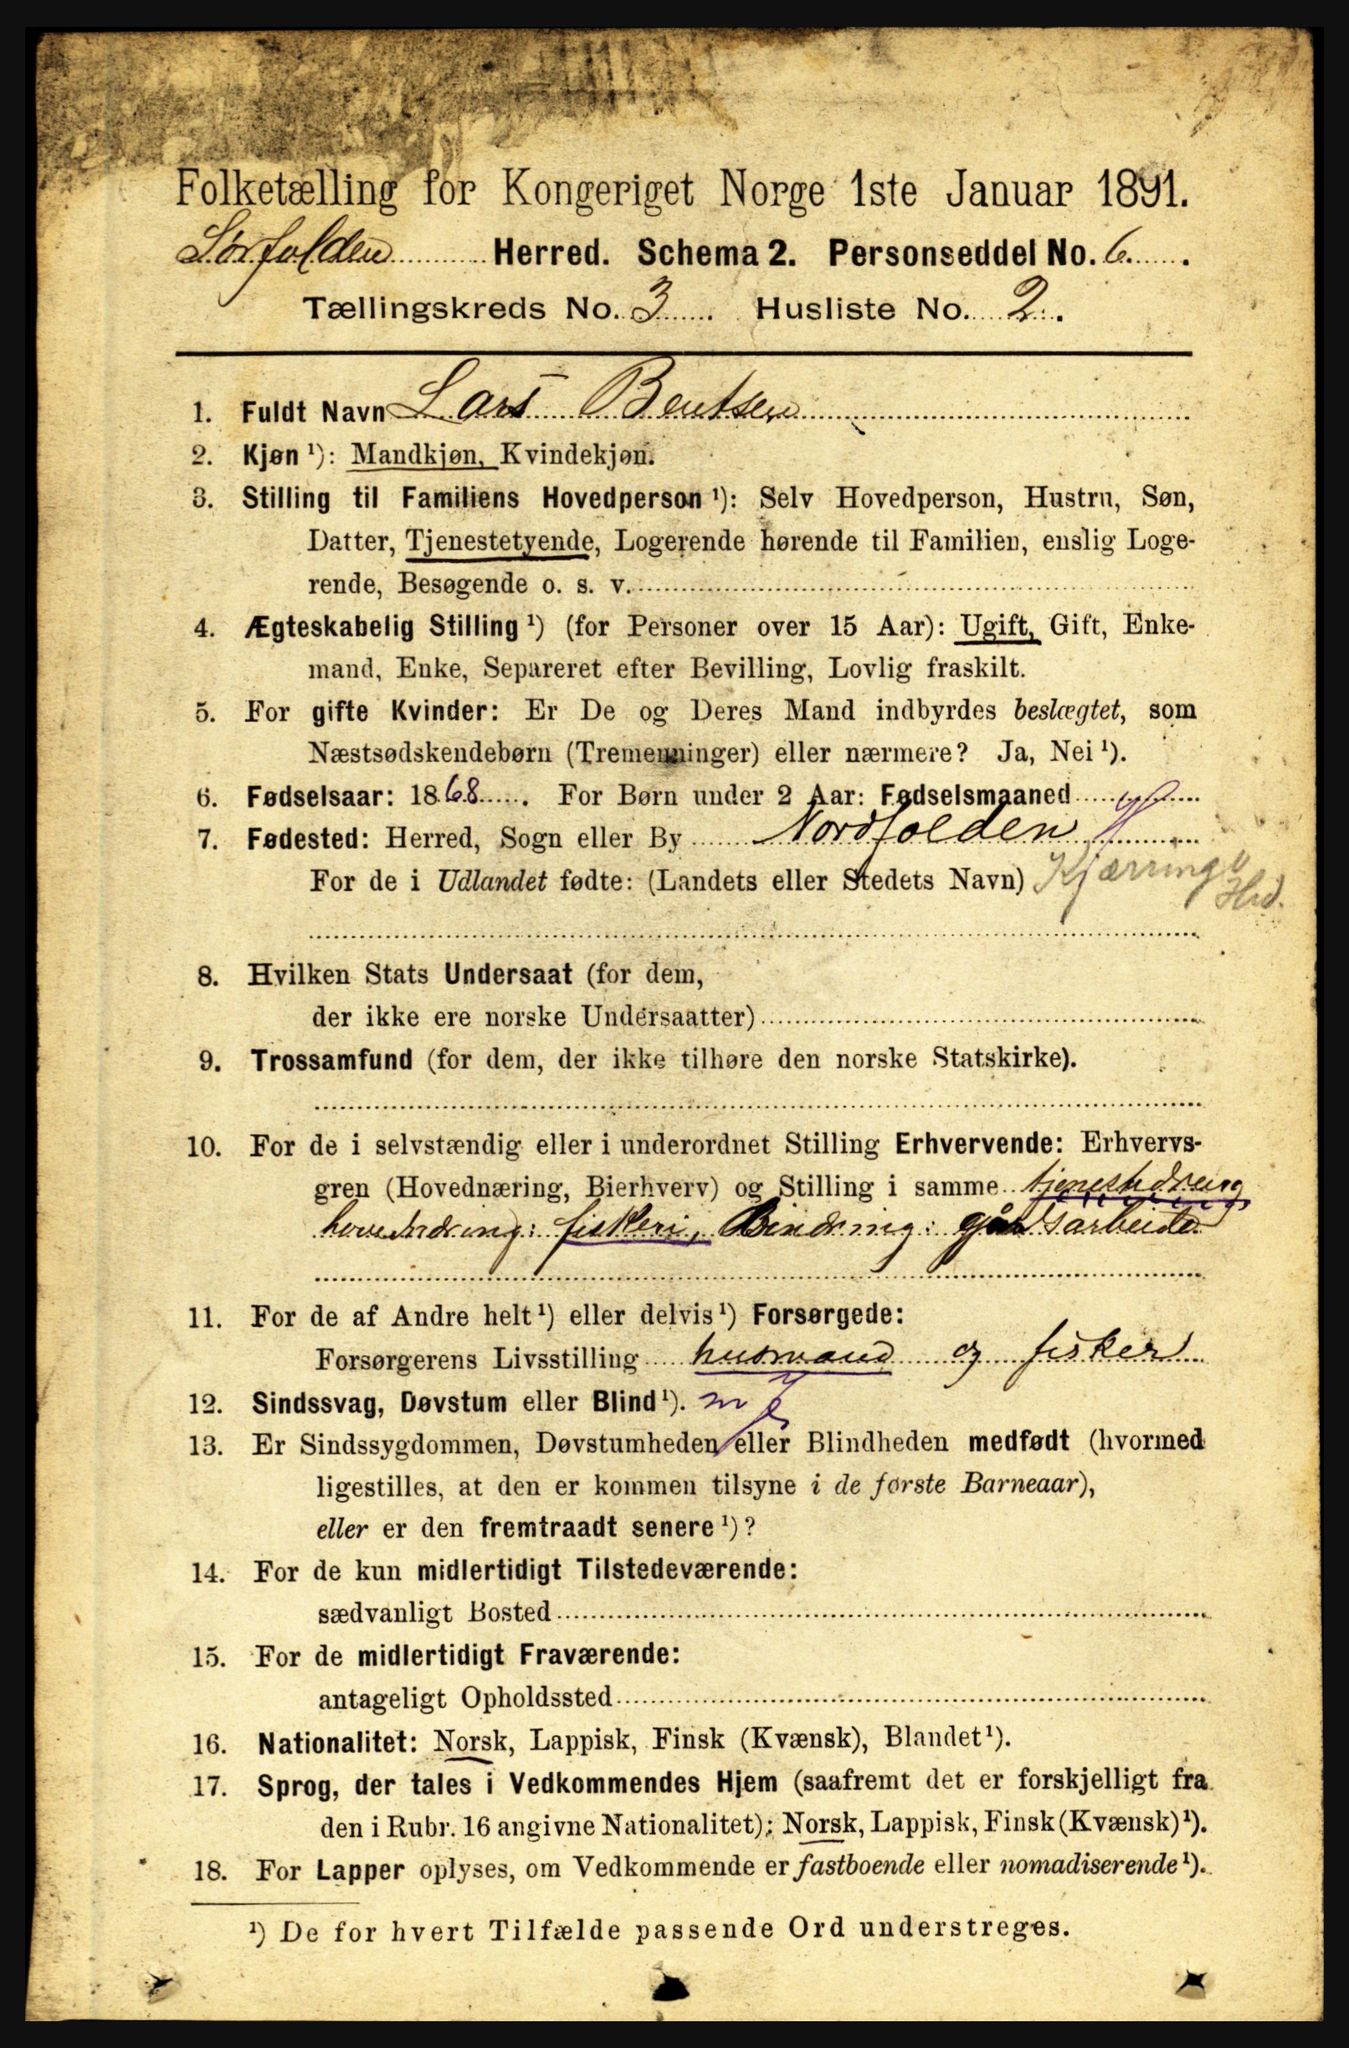 Folketælling for Kongeriget Norge 1ste Januar 1891.
Sørfolden Herred. Schema 2. Personseddel No. 6.
Tællingskreds No. 3. Husliste No. 2.
1. Fuldt Navn Lars Bentsen
2. Kjøn ¹): Mandkjøn, Kvindekjøn.
3. Stilling til Familiens Hovedperson ¹): Selv Hovedperson, Hustru, Søn,
Datter, Tjenestetyende, Logerende hørende til Familien, enslig Loge-
rende, Besøgende o. s. v.
4. Ægteskabelig Stilling ¹) (for Personer over 15 Aar): Ugift, Gift, Enke-
mand, Enke, Separeret efter Bevilling, Lovlig fraskilt.
5. For gifte Kvinder: Er De og Deres Mand indbyrdes beslægtet, som
Næstsødskendebørn (Tremenninger) eller nærmere? Ja, Nei ¹).
6. Fødselsaar: 1868. For Børn under 2 Aar: Fødselsmaaned
7. Fødested: Herred, Sogn eller By Nordfolden
For de i Udlandet fødte: (Landets eller Stedets Navn) Kjærring
Hrd.
8. Hvilken Stats Undersaat (for dem,
der ikke ere norske Undersaatter)
9. Trossamfund (for dem, der ikke tilhøre den norske Statskirke).
10. For de i selvstændig eller i underordnet Stilling Erhvervende: Erhvervs-
gren (Hovednæring, Bierhverv) og Stilling i samme tjenestdreng
hovednæring: fiskeri, Binæring: gårdsarbeide
11. For de af Andre helt ¹) eller delvis ¹) Forsørgede:
Forsørgerens Livsstilling husmand og fisker
12. Sindssvag, Døvstum eller Blind ¹).
13. Er Sindssygdommen, Døvstumheden eller Blindheden medfødt (hvormed
ligestilles, at den er kommen tilsyne i de første Barneaar),
eller er den fremtraadt senere ¹)?
14. For de kun midlertidigt Tilstedeværende:
sædvanligt Bosted
15. For de midlertidigt Fraværende:
antageligt Opholdssted
16. Nationalitet: Norsk, Lappisk, Finsk (Kvænsk), Blandet ¹).
17. Sprog, der tales i Vedkommendes Hjem (saafremt det er forskjelligt fra
den i Rubr. 16 angivne Nationalitet); Norsk, Lappisk, Finsk (Kvænsk) ¹).
18. For Lapper oplyses, om Vedkommende er fastboende eller nomadiserende ¹).
¹) De for hvert Tilfælde passende Ord understreges.